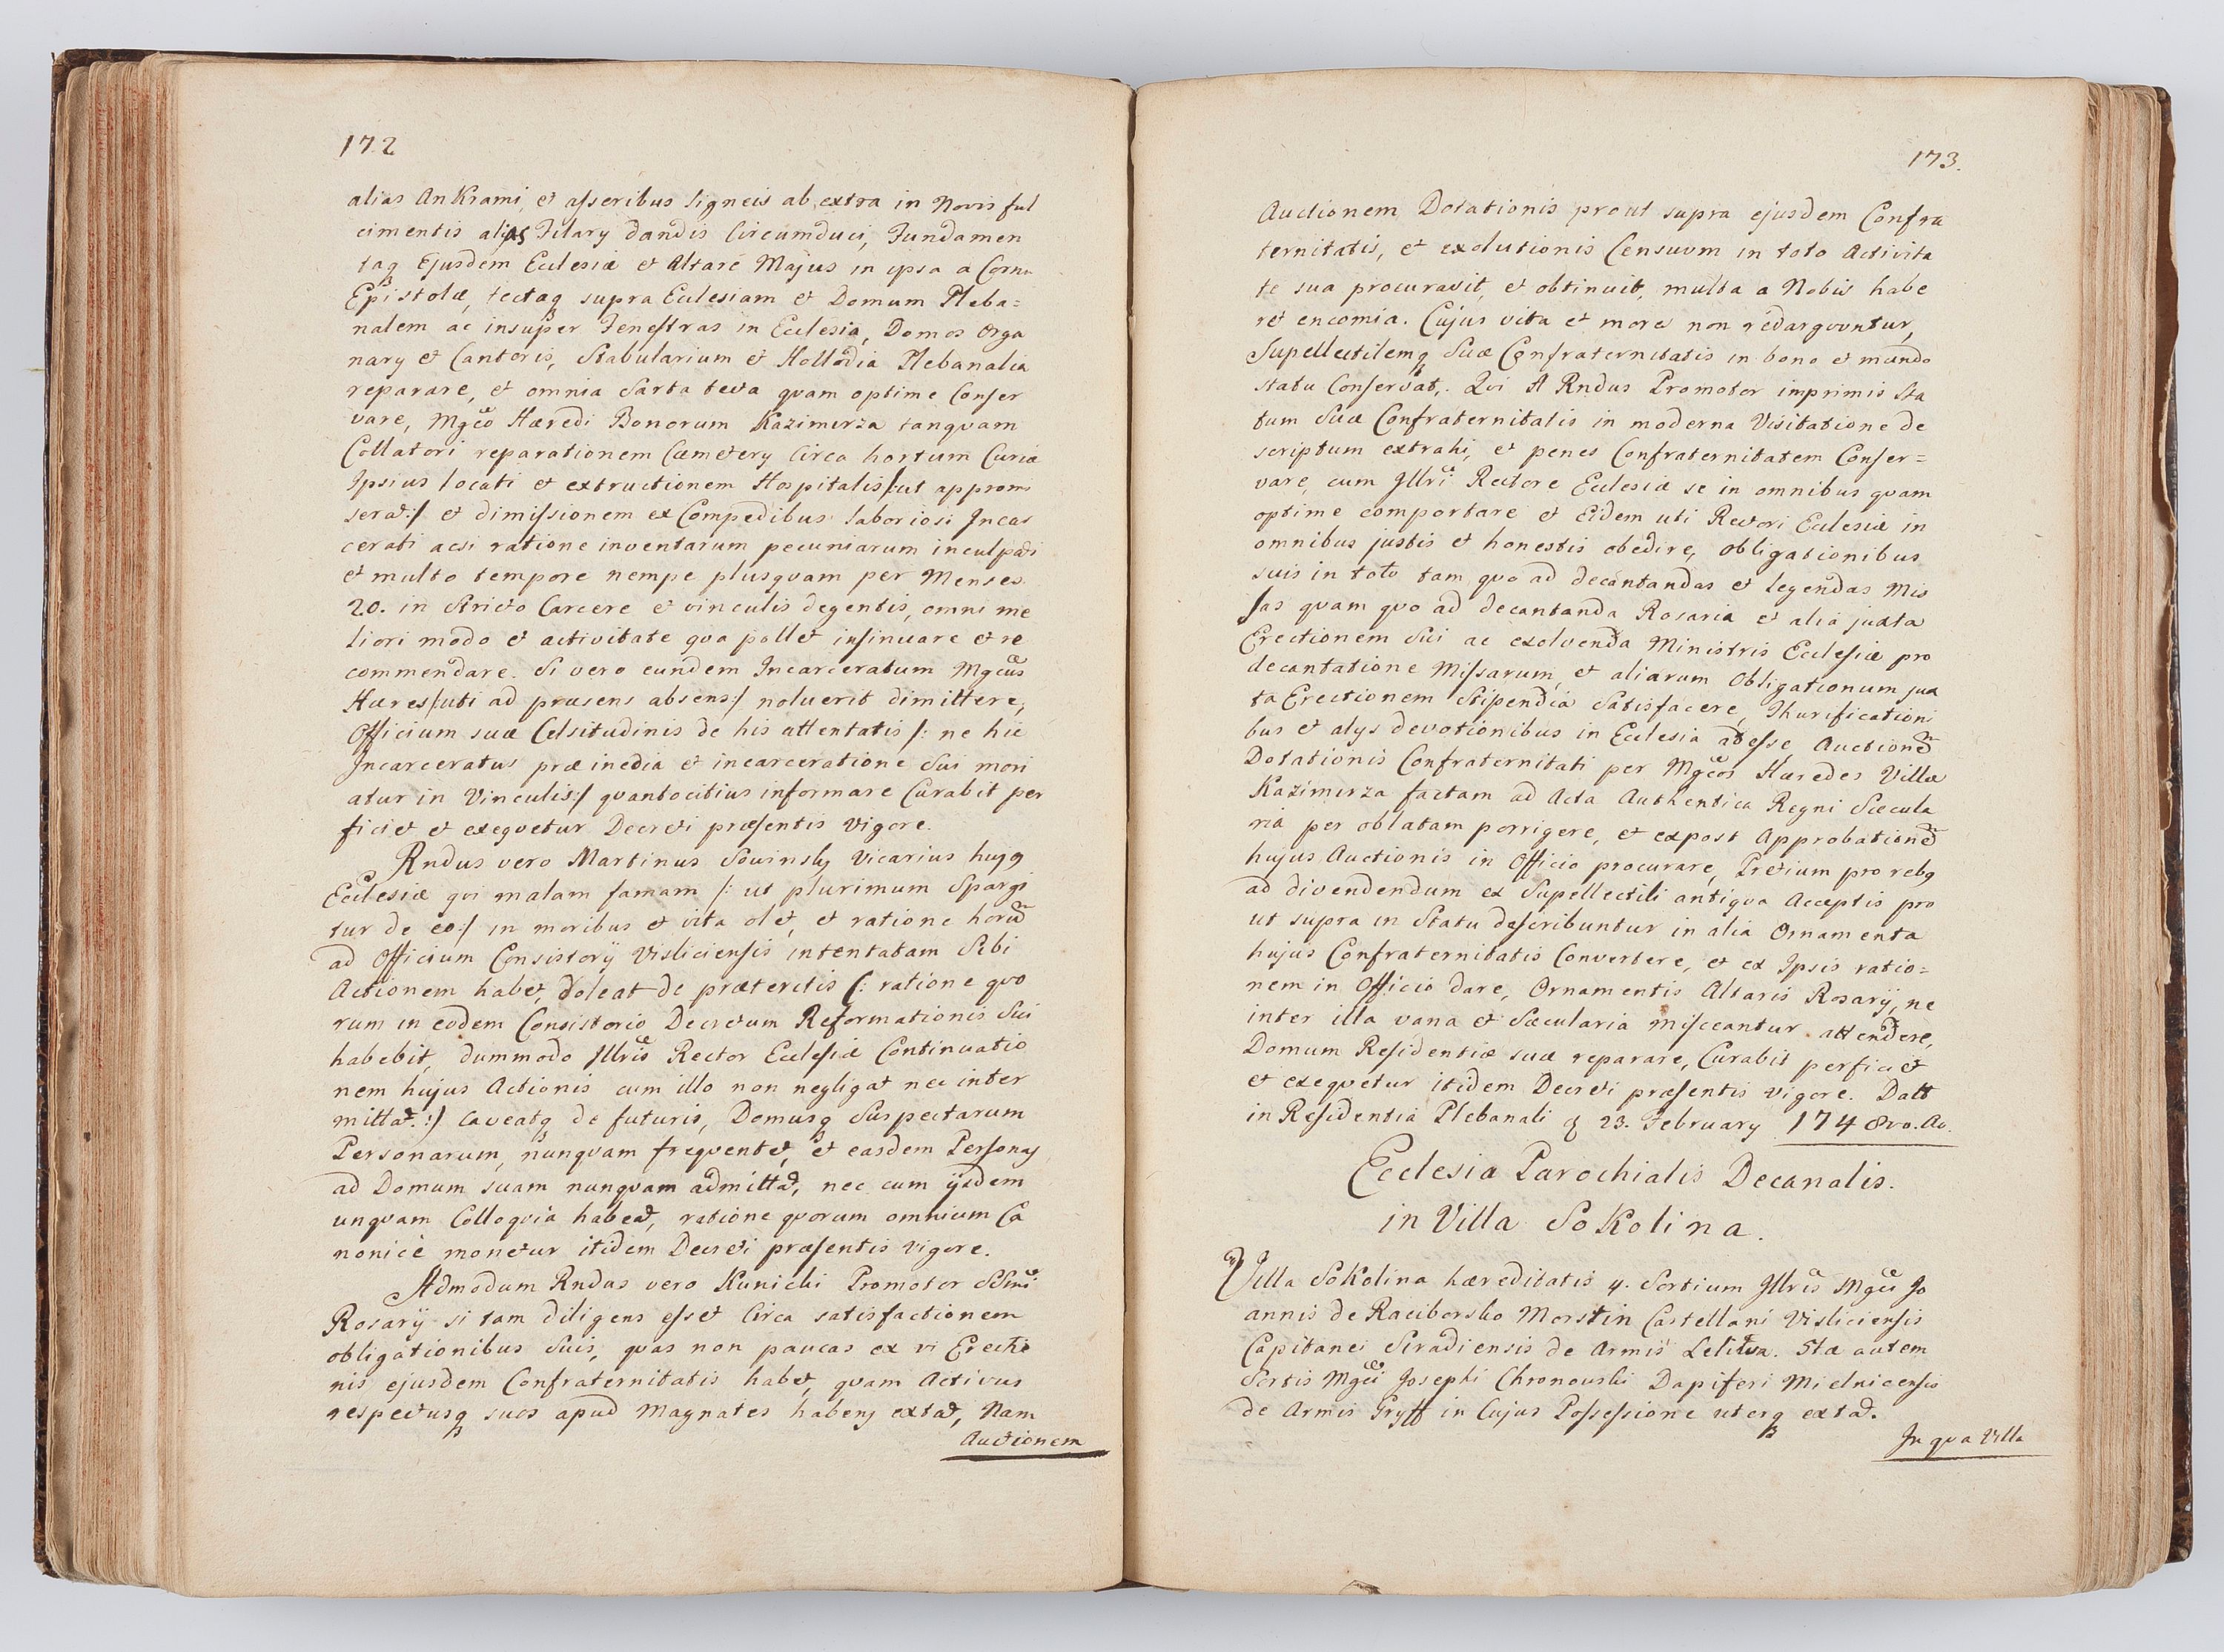 172
alias Ankrami, et asseribus ligneis ab extra in Novis ful
cimentis alias Filary dandis Circumduci, Fundamen
taq Ejusdem Ecclesiæ et Altare Majus in ipsa a Cornu
Epistolæ, tectaq supra Ecclesiam et Domum Pleba=
nalem ac insuper Fenestras in Ecclesia, Domos Orga
nary et Cantoris, Stabularium et Hollodia Plebanalia
reparare, et omnia Sarta tecta quam optime Conser
vare, Mgco Hæredi Bonorum Kazimirza tanquam
Collatori reparationem Cæmetery Circa hortum Curiæ
Ipsius locati et extructionem Hospitalis /:ut appromi
serat:/ et dimissionem ex Compedibus laboriosi Incar
cerati acsi ratione inventarum pecuniarum inculpati
et multo tempore nempe plusquam per Menses
20. in Stricto Carcere et vinculis degentis, omni me
liori modo et activitate qua pollet insinuare et re
commendare. Si vero eundem Incarceratum Mgcus
Hæres /:uti ad præsens absens:/ noluerit dimittere,
Officium suæ Celsitudinis de his attentatis /: ne hic
Incarceratus præ inedia et incarceratione Sui mori
atur in Vinculis:/ quantocitius informare Curabit per
ficiet et exequetur Decreti præsentis vigore.
Rndus vero Martinus Sowinsky Vicarius hujq
Ecclesiæ qui malam famam /: ut plurimum Spargi
tur de eo:/ in moribus et vita olet, et ratione horum
ad Officium Consistorÿ Visliciensis intentatam Sibi
Actionem habet, doleat de præteritis (: ratione quo
rum in eodem Consistorio Decretum Reformationis Sui
habebit, dummodo Illris Rector Ecclesiæ Continuatio
nem hujus Actionis cum illo non negligat nec inter
mittat. :) caveatq de futuris, Domusq Suspectarum
Personarum, nunquam frequentet, et easdem Personas
ad Domum suam nunquam admittat, nec cum ÿsdem
unquam Colloquia habeat, ratione quorum omnium Ca
nonicè monetur itidem Decreti præsentis vigore.
Admodum Rndus vero Kunicki Promotor SSmi
Rosarÿ si tam diligens esset Circa satisfactionem
obligationibus Suis, quas non paucas ex vi Erectio
nis ejusdem Confraternitatis habet, quam Activus
respectusq suos apud Magnates habens extat, Nam
Auctionem
173.
Auctionem Dotationis prout supra ejusdem Confra
ternitatis, et exolutionis Censuum in toto Activita
te sua procuravit, et obtinuit, multa a Nobis habe
ret encomia. Cujus vita et mores non redarguuntur,
Supellectilemq Suæ Confraternitatis in bono et mundo
statu Conservat,. Qui A Rndus Promotor imprimis Sta
tum Suæ Confraternitatis in moderna Visitatione de
scriptum extrahi, et penes Confraternitatem Conser=
vare, cum Illri Rectore Ecclesiæ se in omnibus quam
optime comportare et Eidem uti Rectori Ecclesiæ in
omnibus justis et honestis obedire, obligationibus
suis in toto tam quo ad decantandas et legendas Mis
sas quam quo ad decantanda Rosaria et alia juxta
Erectionem Sui ac exolvenda Ministris Ecclesiæ pro
decantatione Missarum, et aliarum Obligationum jux
ta Erectionem Stipendia Satisfacere, Thurificationi
bus et alys devotionibus in Ecclesia adesse, Auctionem
Dotationis Confraternitati per Mgcos Hæredes Villæ
Kazimirza factam ad Acta Authentica Regni Sæcula
ria per oblatam porrigere, et expost Approbationem
hujus Auctionis in Officio procurare, Pretium pro rebq
ad divendendum ex Supellectili antiqva Acceptis pro
ut supra in Statu describuntur in alia Ornamenta
hujus Confraternitatis Convertere, et ex Ipsis ratio=
nem in Officio dare, Ornamentis Altaris Rosarÿ, ne
inter illa vana et Sæcularia misceantur attendere,
Domum Residentiæ suæ reparare, Curabit perficiet
et exequetur itidem Decreti præsentis vigore. Datt
in Residentia Plebanali 23. February 1748vo. Ao.
Ecclesia Parochialis Decanalis.
in Villa Sokolina.
Villa Sokolina hæreditatis 4. Sortium Illris Mgci Jo
annis de Raciborsko Morstin Castellani Visliciensis
Capitanei Siradiensis de Armis Leliwa. 5tæ autem
Sortis Mgci Josephi Chronowski Dapiferi Mielnicensis
de Armis Gryff in Cujus Possessione uterq extat.
In qua Villa